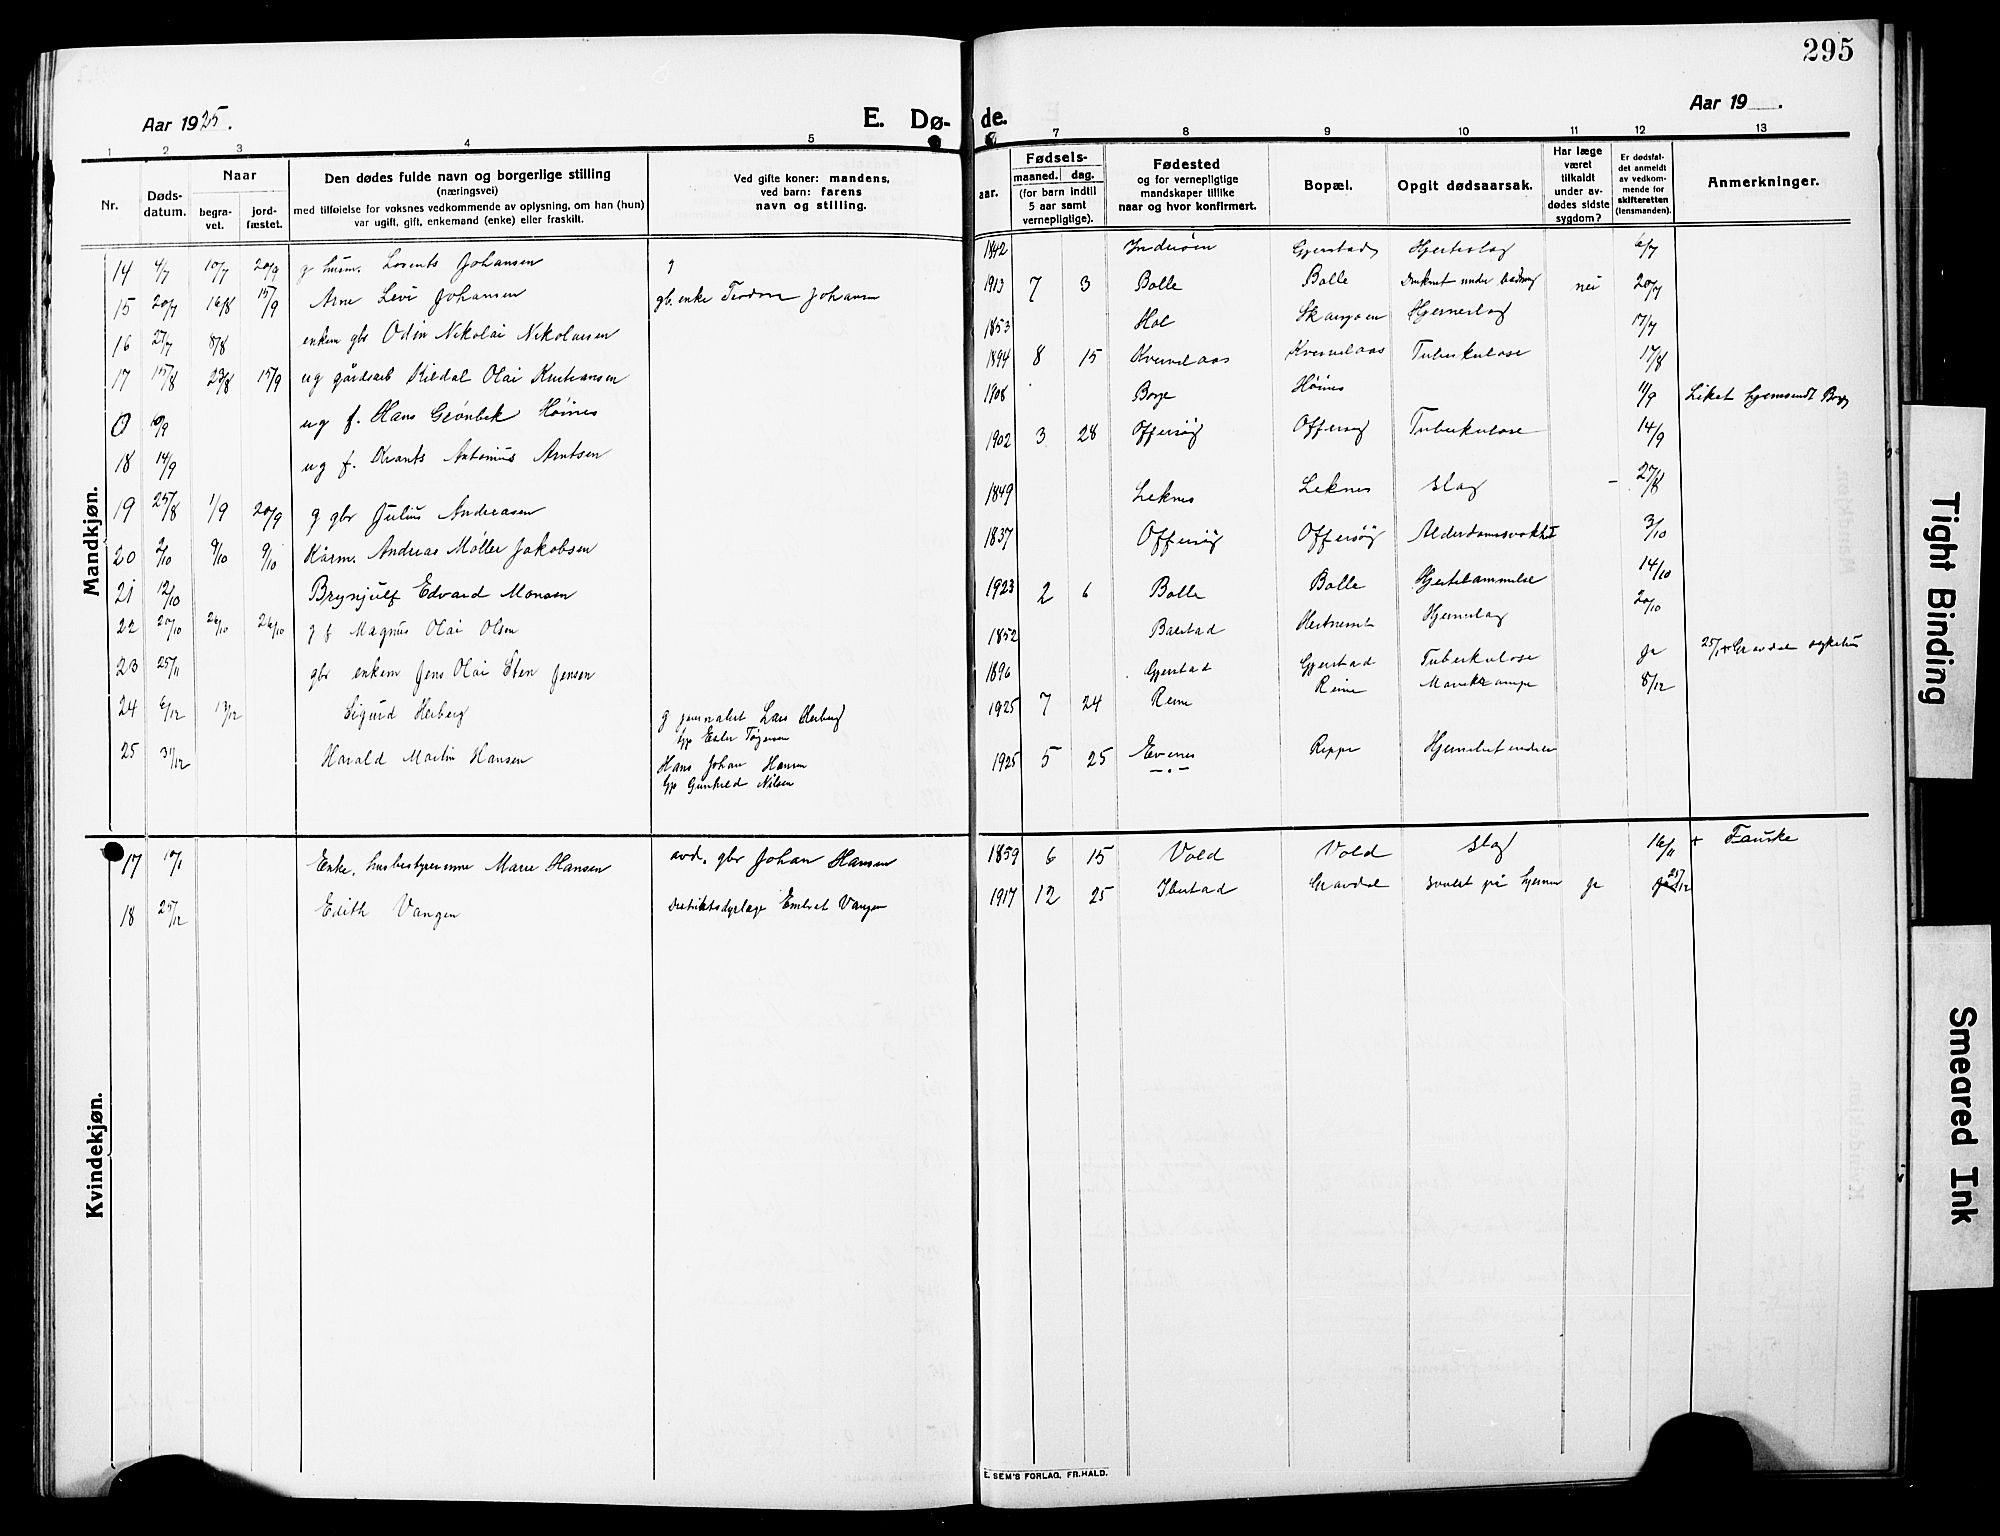 295
Aar 1925.
E. Dø-
de.
Aar 19 .
1 2 3 4 5
7 8 9 10 11 12 13
Nr.
Døds-
datum.
Naar
begra-
vet.
jord-
fæstet.
Den dødes fulde navn og borgerlige stilling
(næringsvei)
med tilføielse for voksnes vedkommende av oplysning, om han (hun)
var ugift, gift, enkemand (enke) eller fraskilt.
Ved gifte koner: mandens,
ved barn: farens
navn og stilling.
aar.
Fødsels-
maaned. dag.
(for barn indtil
5 aar samt
vernepligtige).
Fødested
og for vernepligtige
mandskaper tillike
naar og hvor konfirmert.
Bopæl.
Opgit dødsaarsak.
Har læge
været
tilkaldt
under av-
dødes sidste
sygdom?
Er dødsfal-
det anmeldt
av vedkom-
mende for
skifteretten
(lensmanden).
Anmerkninger.
Mandkjøn.
14 4/7 10/7 20/9 g husm. Lorents Johansen 1842 Inderøen Gjerstad Hjerteslag 6/7
15 20/7 16/8 15/9 Arne Levi Johansen gb. enke Johansen 1913 7 3 Bolle Bolle Druknet under badning nei 20/7
16 27/7 8/8 enkem gbr Odin Nikolai Nikolaisen 1853 Hol Hjerneslag 17/7
17 15/8 23/8 15/9 ug gårdsarb Olai Kristiansen 1894 8 15 Kvernelaas Tuberkulose 17/8
0 10/9 ug f. Hans Grønbek Høines 1908 Borge Høines 11/9 Liket hjemsendt Borge
18 14/9 ug f. Antonius Arntsen 1902 3 28 Offersøy Offersøy Tuberkulose 14/9
19 25/8 1/9 20/9 g gbr Julius Andreasen 1849 Leknes Leknes slag - 27/8
20 2/10 9/10 9/10 Kårm. Andreas Møller Jakobsen 1837 Offersøy Offersøy Alderdomssvakhet 3/10
21 12/10 Brynjulf Edvard Monsen 1923 2 6 Bolle Bolle 14/10
22 20/10 26/10 26/10 g f Magnus Olai Olsen 1852 Hjerneslag 20/10
23 25/11 gbr enkem Jens Olai Sten Jensen 1896 Gjerstad Gjerstad Tuberkulose ja Gravdal sykehus
24 6/12 Sigurd Herberg g journalist Lars Herberg 1925 7 24 Reine Reine 8/12
Ester
25 31/12 Harald Martin Hansen Hans Johan Hansen 1925 5 25 Evenes
Nilsen
Kvindekjøn.
17 Enke, husbestyrerinne Marie Hansen avd. gbr Johan Hansen 1859 6 15 Vold Vold slag 16/11 + Fauske
18 25/12 Edith Vangen Vangen 1917 12 25 Ibestad Gravdal ja
E. SEM'S FORLAG, FR.HALD.
Tight Binding
Smeared Ink